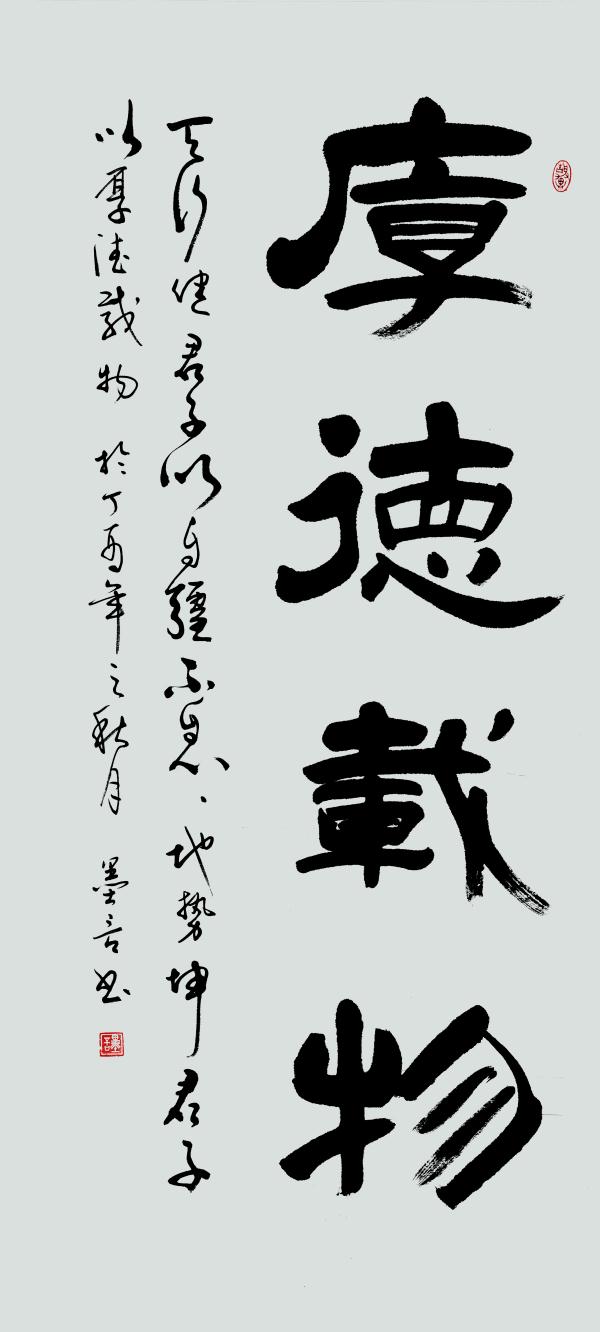 厚德載物
天行健君子以自彊不息、地勢坤君子
以厚德載物 於丁酉年之秋月 墨言书